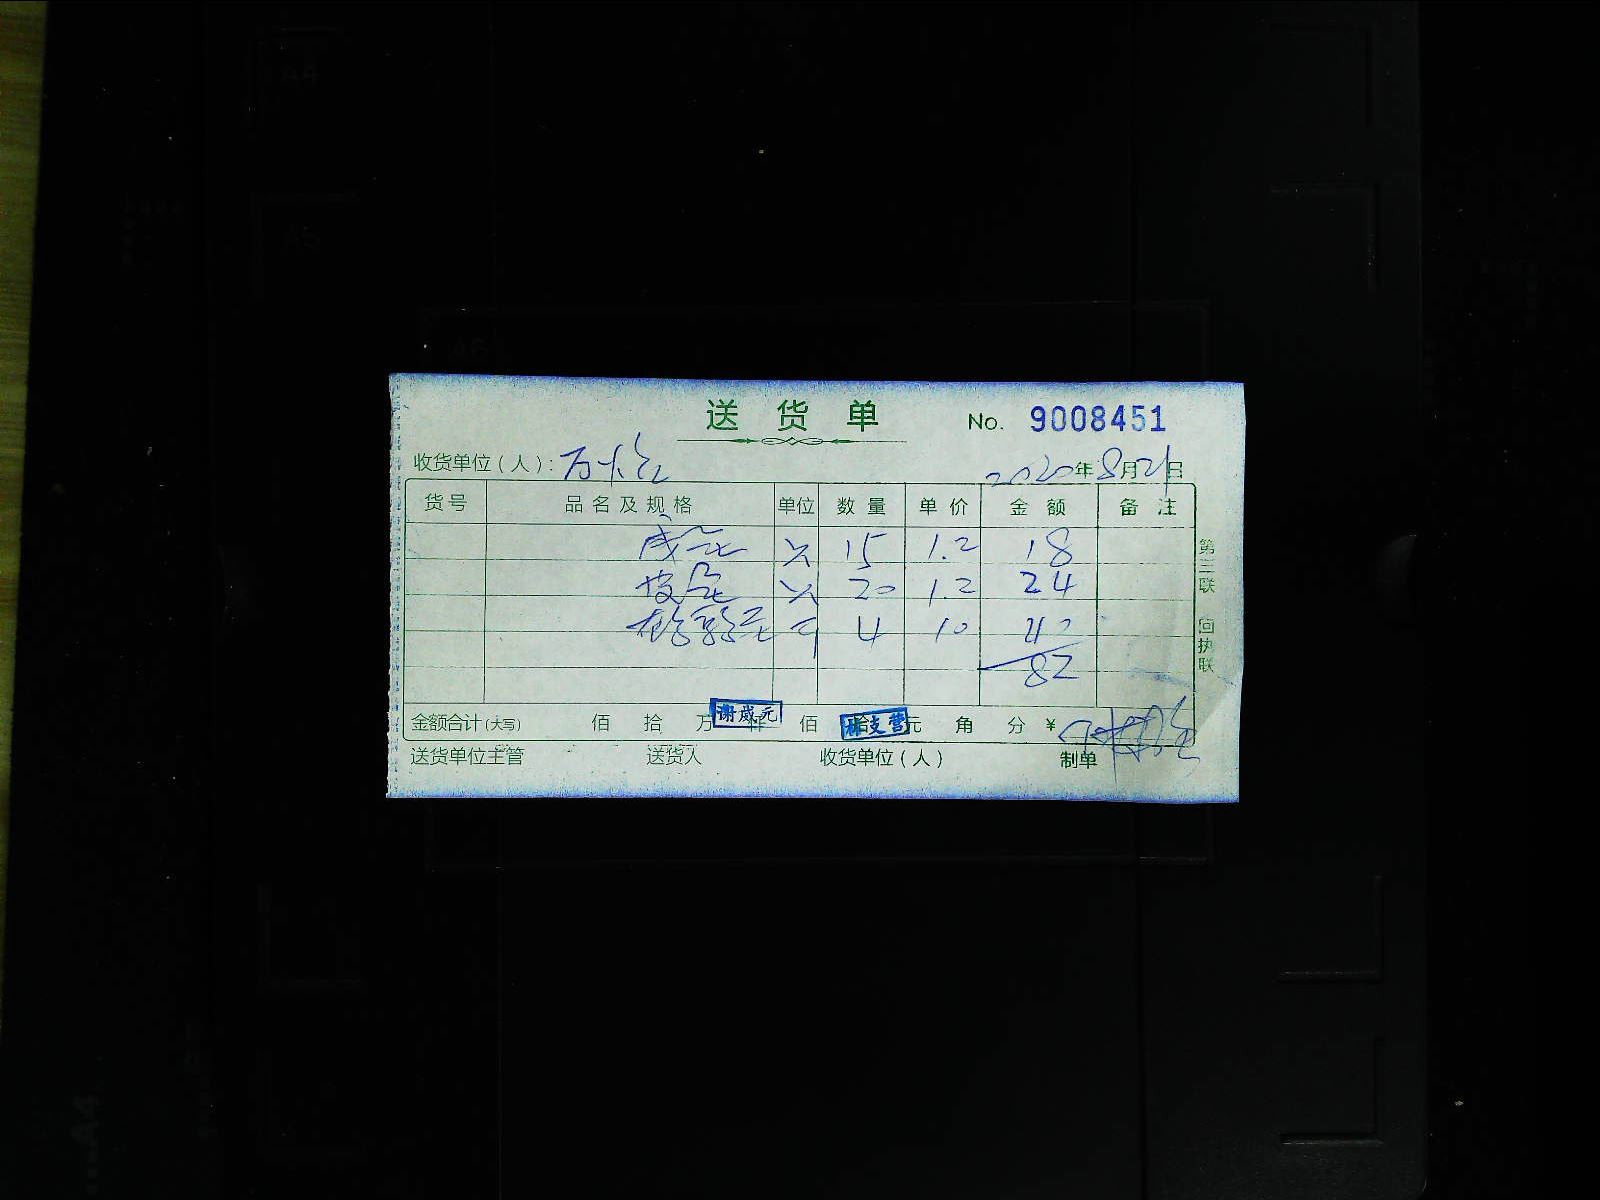 送货单 No. 9008451
收货单位（人）： 2020年8月21日
货号 品名及规格 单位 数量 单价 金额 备注
15 1.2 18
皮蛋 20 1.2 24
4 10 40
82
金额合计（大写） 佰 拾 万 仟 佰 拾 元 角 分 ¥
谢威元
林支营
送货单位主管 送货人 收货单位（人） 制单
第三联 回执联
A4
A5
A6
A4